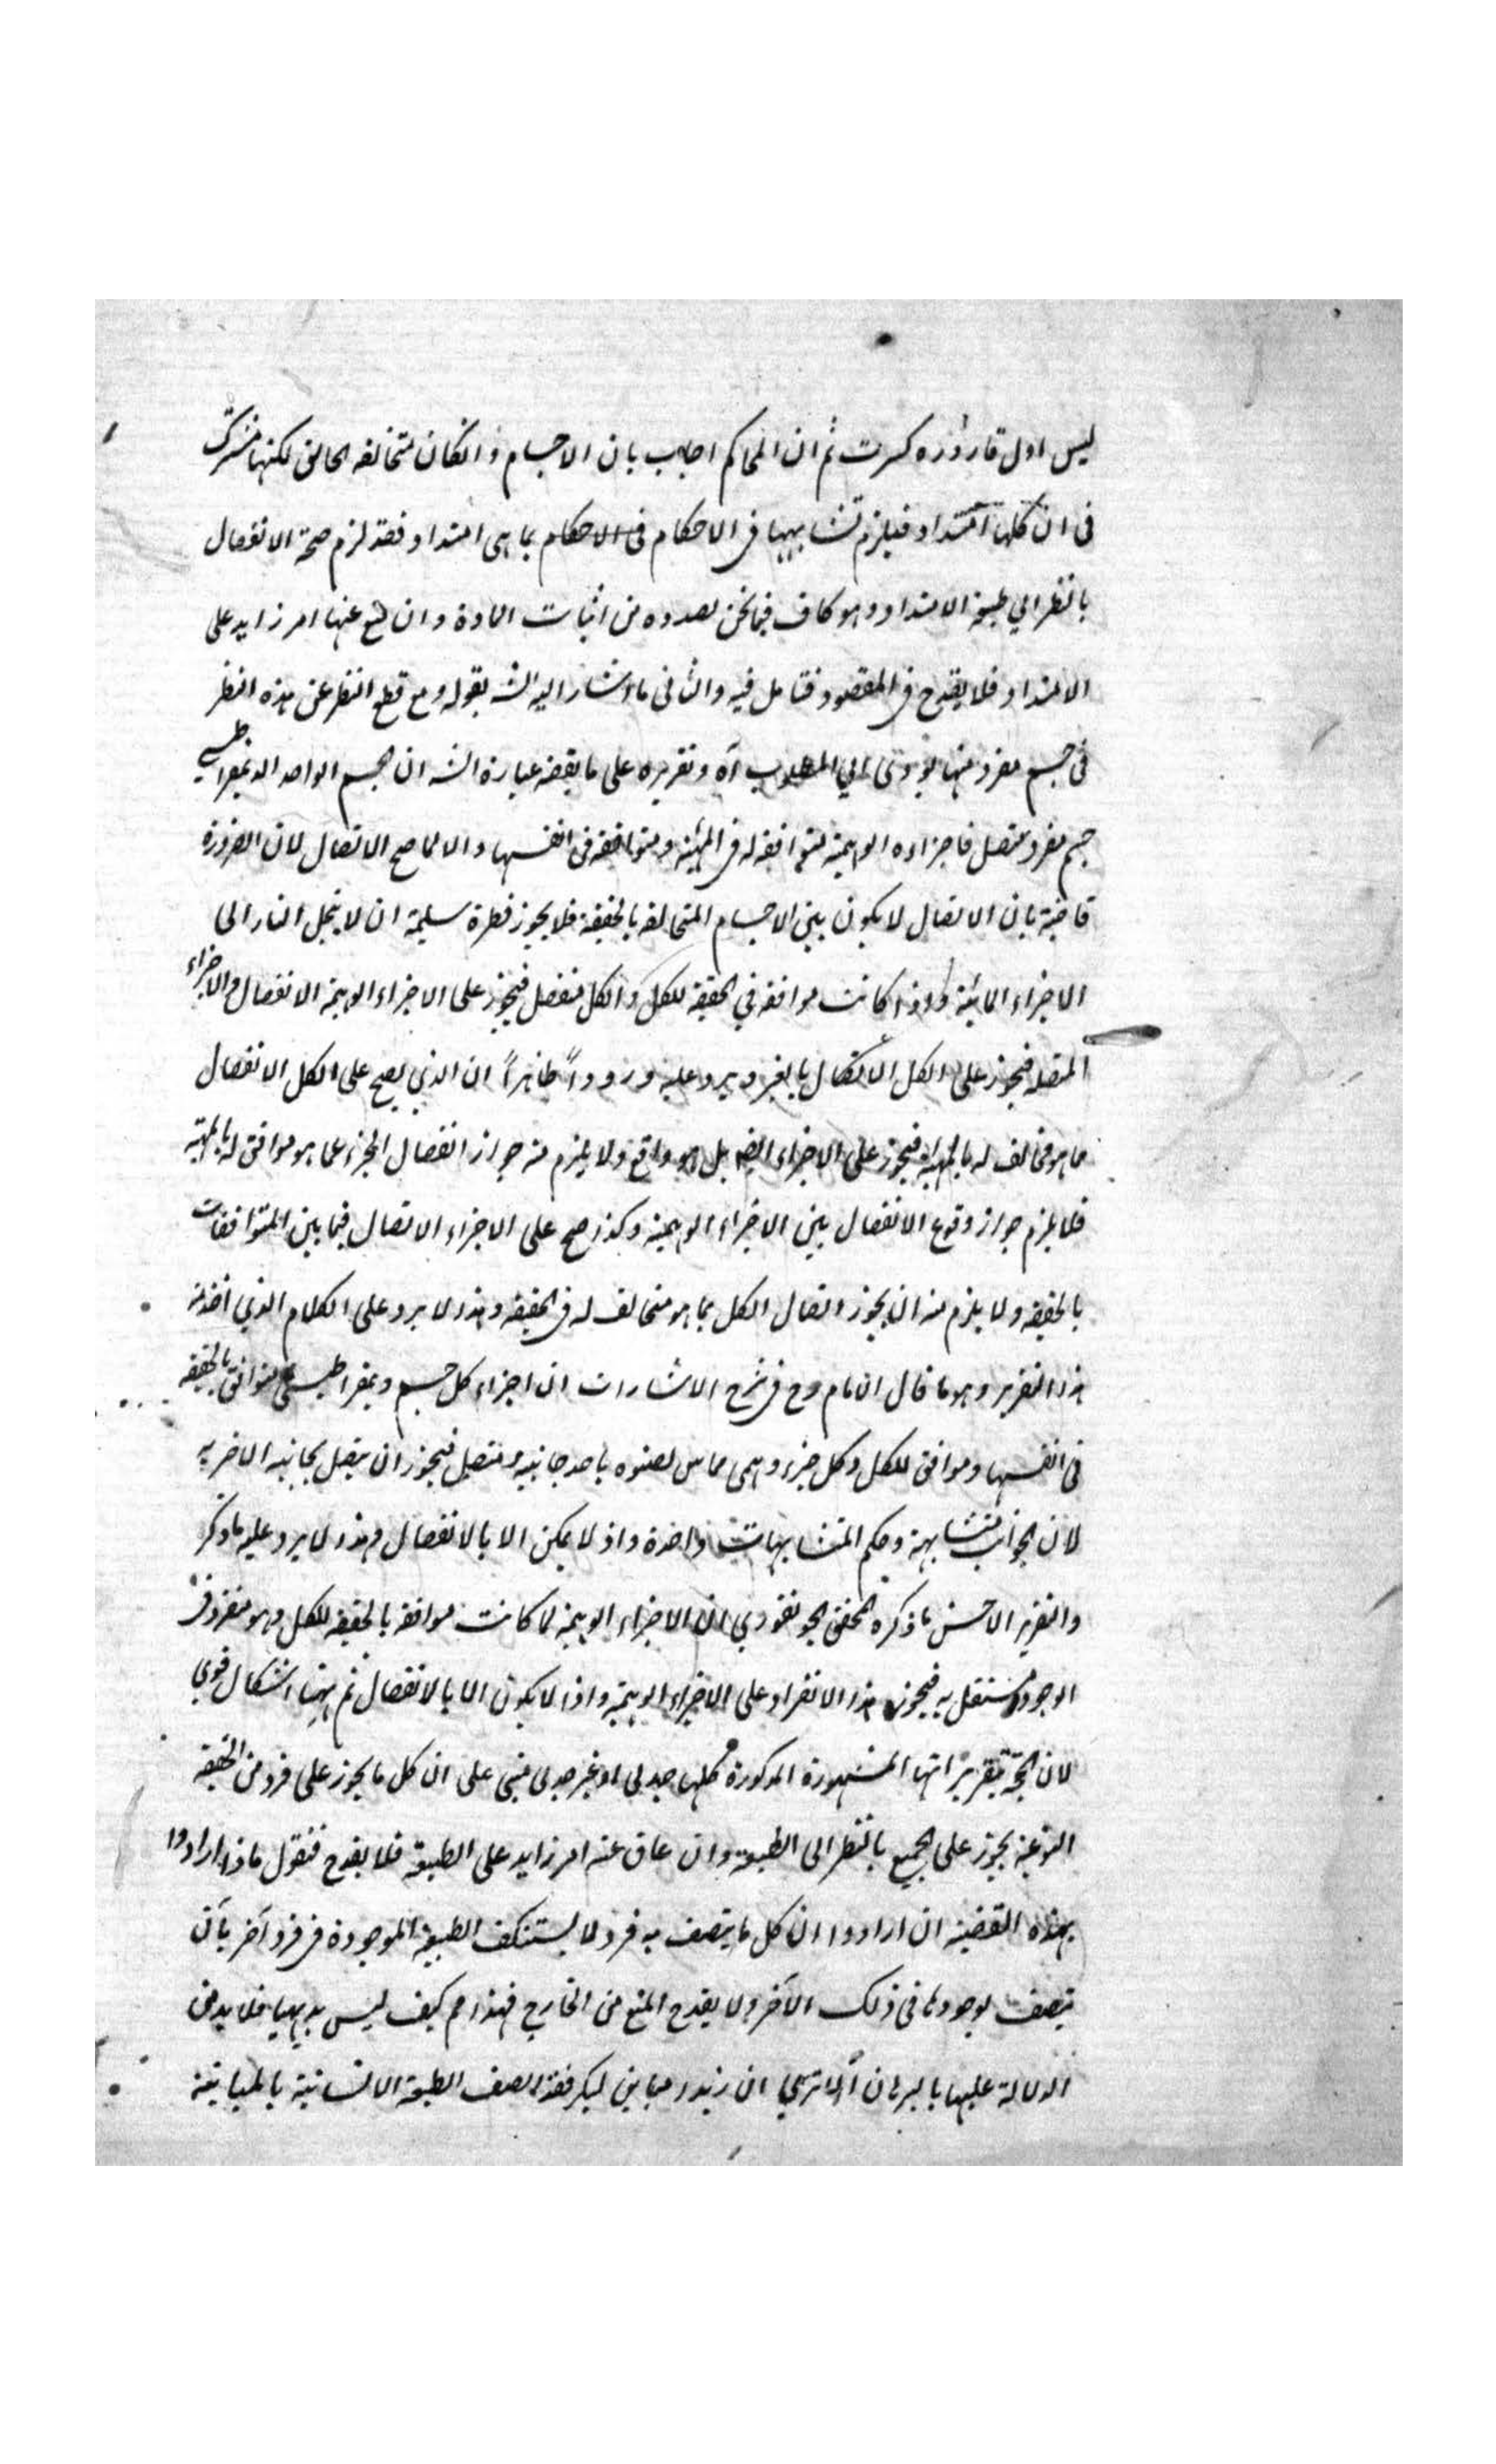 ليس اول قارورة كسرت ثم ان المحاكم اجاب بان الاجسام وانكان متخالفة الحقائق لكنها مشتركة
فى ان كلها امتداد فيلزم تشابهها فى الاحكام فى الاحكام بما هى امتداد فقد لزم صحة الانفصال
بالنظر الي طبيعة الامتداد وهو كاف فيما نحن بصدده من اثبات المادة وان منع عنها امر زايد على
الامتداد فلا يقدح فى المقصود فتامل فيه والثانى ما اشار اليه الش بقوله ومع قطع النظر عن هذه النظر
فى جسم مفرد منها يودى الي المطلوب آه وتقريره على ما يقتضيه عبارة الش ان الجسم الواحد الديمقراطيسي
جسم مفرد متصل فاجزاءه الوهمية متوافقة له فى المهية ومتوافقة فى انفسها والا لما صح الاتصال لان الضرورة
قاضية بان الاتصال لا يكون بين الاجسام المتخالفة بالحقيقة فلا يجوز فطرة سليمة ان لا ينحل النار الى
الاجزاء المائية واذا كانت موافقة في الحقيقة للكل والكل منفصل فيجوز على الاجزاء الوهمية الانفصال والاجزاء
المتصلة فيجوز على الكل الاتصال بالغير ويرد عليه وروداً ظاهراً ان الذي يصح على الكل الانفصال
عما هو مخالف له بالمهية فيجوز على الاجزاء ايضا بل هو واقع ولا يلزم منه جواز انفصال الجزء عما هو موافق له بالمهية
فلا يلزم جواز وقوع الانفصال بين الاجزاء الوهمية وكذا صح على الاجزاء الاتصال فيما بين المتوافقات
بالحقيقة ولا يلزم منه ان يجوز اتصال الكل بما هو متخالف له فى الحقيقة وهذا لا يرد على الكلام الذي اخذ منه
هذا التقرير وهو ما قال الامام رح فى شرح الاشارات ان اجزاء كل جسم ديمقراطيسي متوافق بالحقيقة
فى انفسها وموافق للكل وكل جزء وهمى مماس لصنوه باحد جانبيه متصل فيجوز ان يتصل بجانبه الاخر به
لان الجوانب متشابهة وحكم المتشابهات واحدة واذ لا يمكن الا بالانفصال وهذا لا يرد عليه ما ذكر
والتقرير الاحسن ما ذكره المحقق الجونفوري ان الاجزاء الوهمية لما كانت موافقة بالحقيقة للكل وهو منفرد فى
الوجود مستقل به فيجوز هذا الانفراد على الاجزاء الوهمية واذا لا يكون الا بالانفصال ثم ههنا اشكال قوي
لان الحجة بتقريراتها المشهورة المذكورة كلها جدلى او غير جدلى مبنى على ان كل ما يجوز على فرد من الحقيقة
النوعية يجوز على الجميع بالنظر الى الطبيعة وان عاق عنه امر زايد على الطبيعة فلا يقدح فنقول ماذا ارادوا
بهذه القضية ان ارادوا ان كل ما يتصف به فرد لا يستنكف الطبيعة الموجودة فى فرد آخر بان
يتصف بوجودها فى ذلك الآخر ولا يقدح المنع من الخارج فهذا مم كيف ليس بديهيا فلا بد من
الدلالة عليها بالبرهان الا ترى ان زيدا مباين لبكر فقد اتصف الطبيعة الانسانية بالمباينة